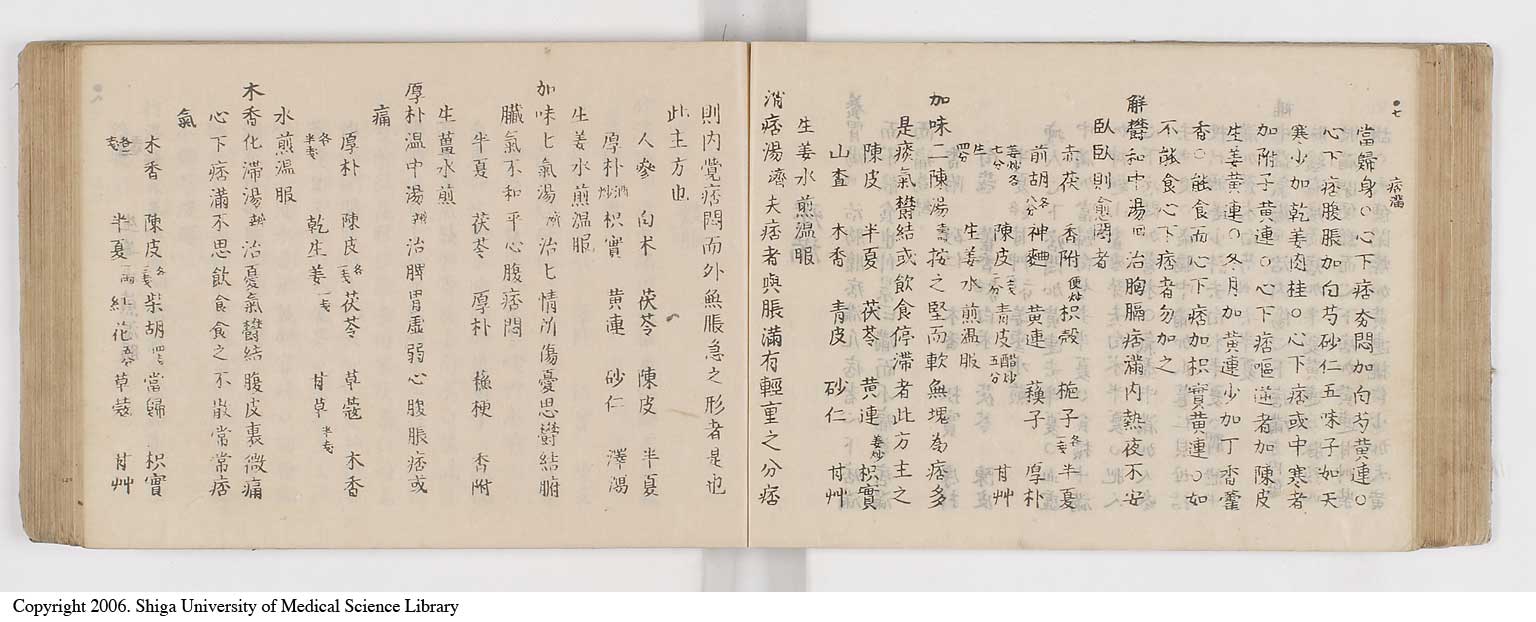 痞滿
當歸身○心下痞夯悶加白芍黄連○
心下痞腹脹加白芍砂仁五味子如天
寒少加乾姜肉桂○心下痞或中寒者
加附子黄連○心下痞嘔逆者加陳皮
生姜黄連○冬月加黄連少加丁香藿
香○能食而心下痞加枳實黄連○如
不能食心下痞者勿加之
解欝和中湯 回 治胸膈痞滿内熱夜不安
臥臥則愈悶者
赤茯 香附 便炒 枳殻 梔子 各一戔 半夏
前胡 各八分 神麯 黄連 薑炒各七分 蘓子 厚朴
陳皮 一戔二分 青皮 醋炒五分 甘艸
生 四分 生姜水煎温服
加味二陳湯 壽 按之堅而軟無塊為痞多
是痰氣欝結或飲食停滯者此方主之
陳皮 半夏 茯苓 黄連 姜炒 枳實
山査 木香 青皮 砂仁 甘艸
生姜水煎温服
消痞湯 濟 夫痞者與脹滿有輕重之分痞
則内覺痞悶而外無脹急之形者是也
此主方也
人參 白朮 茯苓 陳皮 半夏
厚朴 酒炒 枳實 黄連 砂仁 澤瀉
生姜水煎温服
加味七氣湯 濟 治七情所傷憂思欝結腑
臟氣不和平心腹痞悶
半夏 茯苓 厚朴 桔梗 香附
生薑水煎
厚朴温中湯 辨 治脾胃虚弱心腹脹痞或
痛
厚朴 陳皮 各一戔 茯苓 草蔻 木香
各半戔 乾生姜 一戔 甘草 半戔
水煎温服
木香化滯湯 辨 治憂氣欝結腹皮裏微痛
心下痞滿不思飲食食之不散常常痞
氣
木香 陳皮 各三戔 柴胡 四戔 當歸 枳實
各二戔 半夏 一両 紅花 五分 草蔻 甘艸
Copyright 2006. Shiga University of Medical Science Library